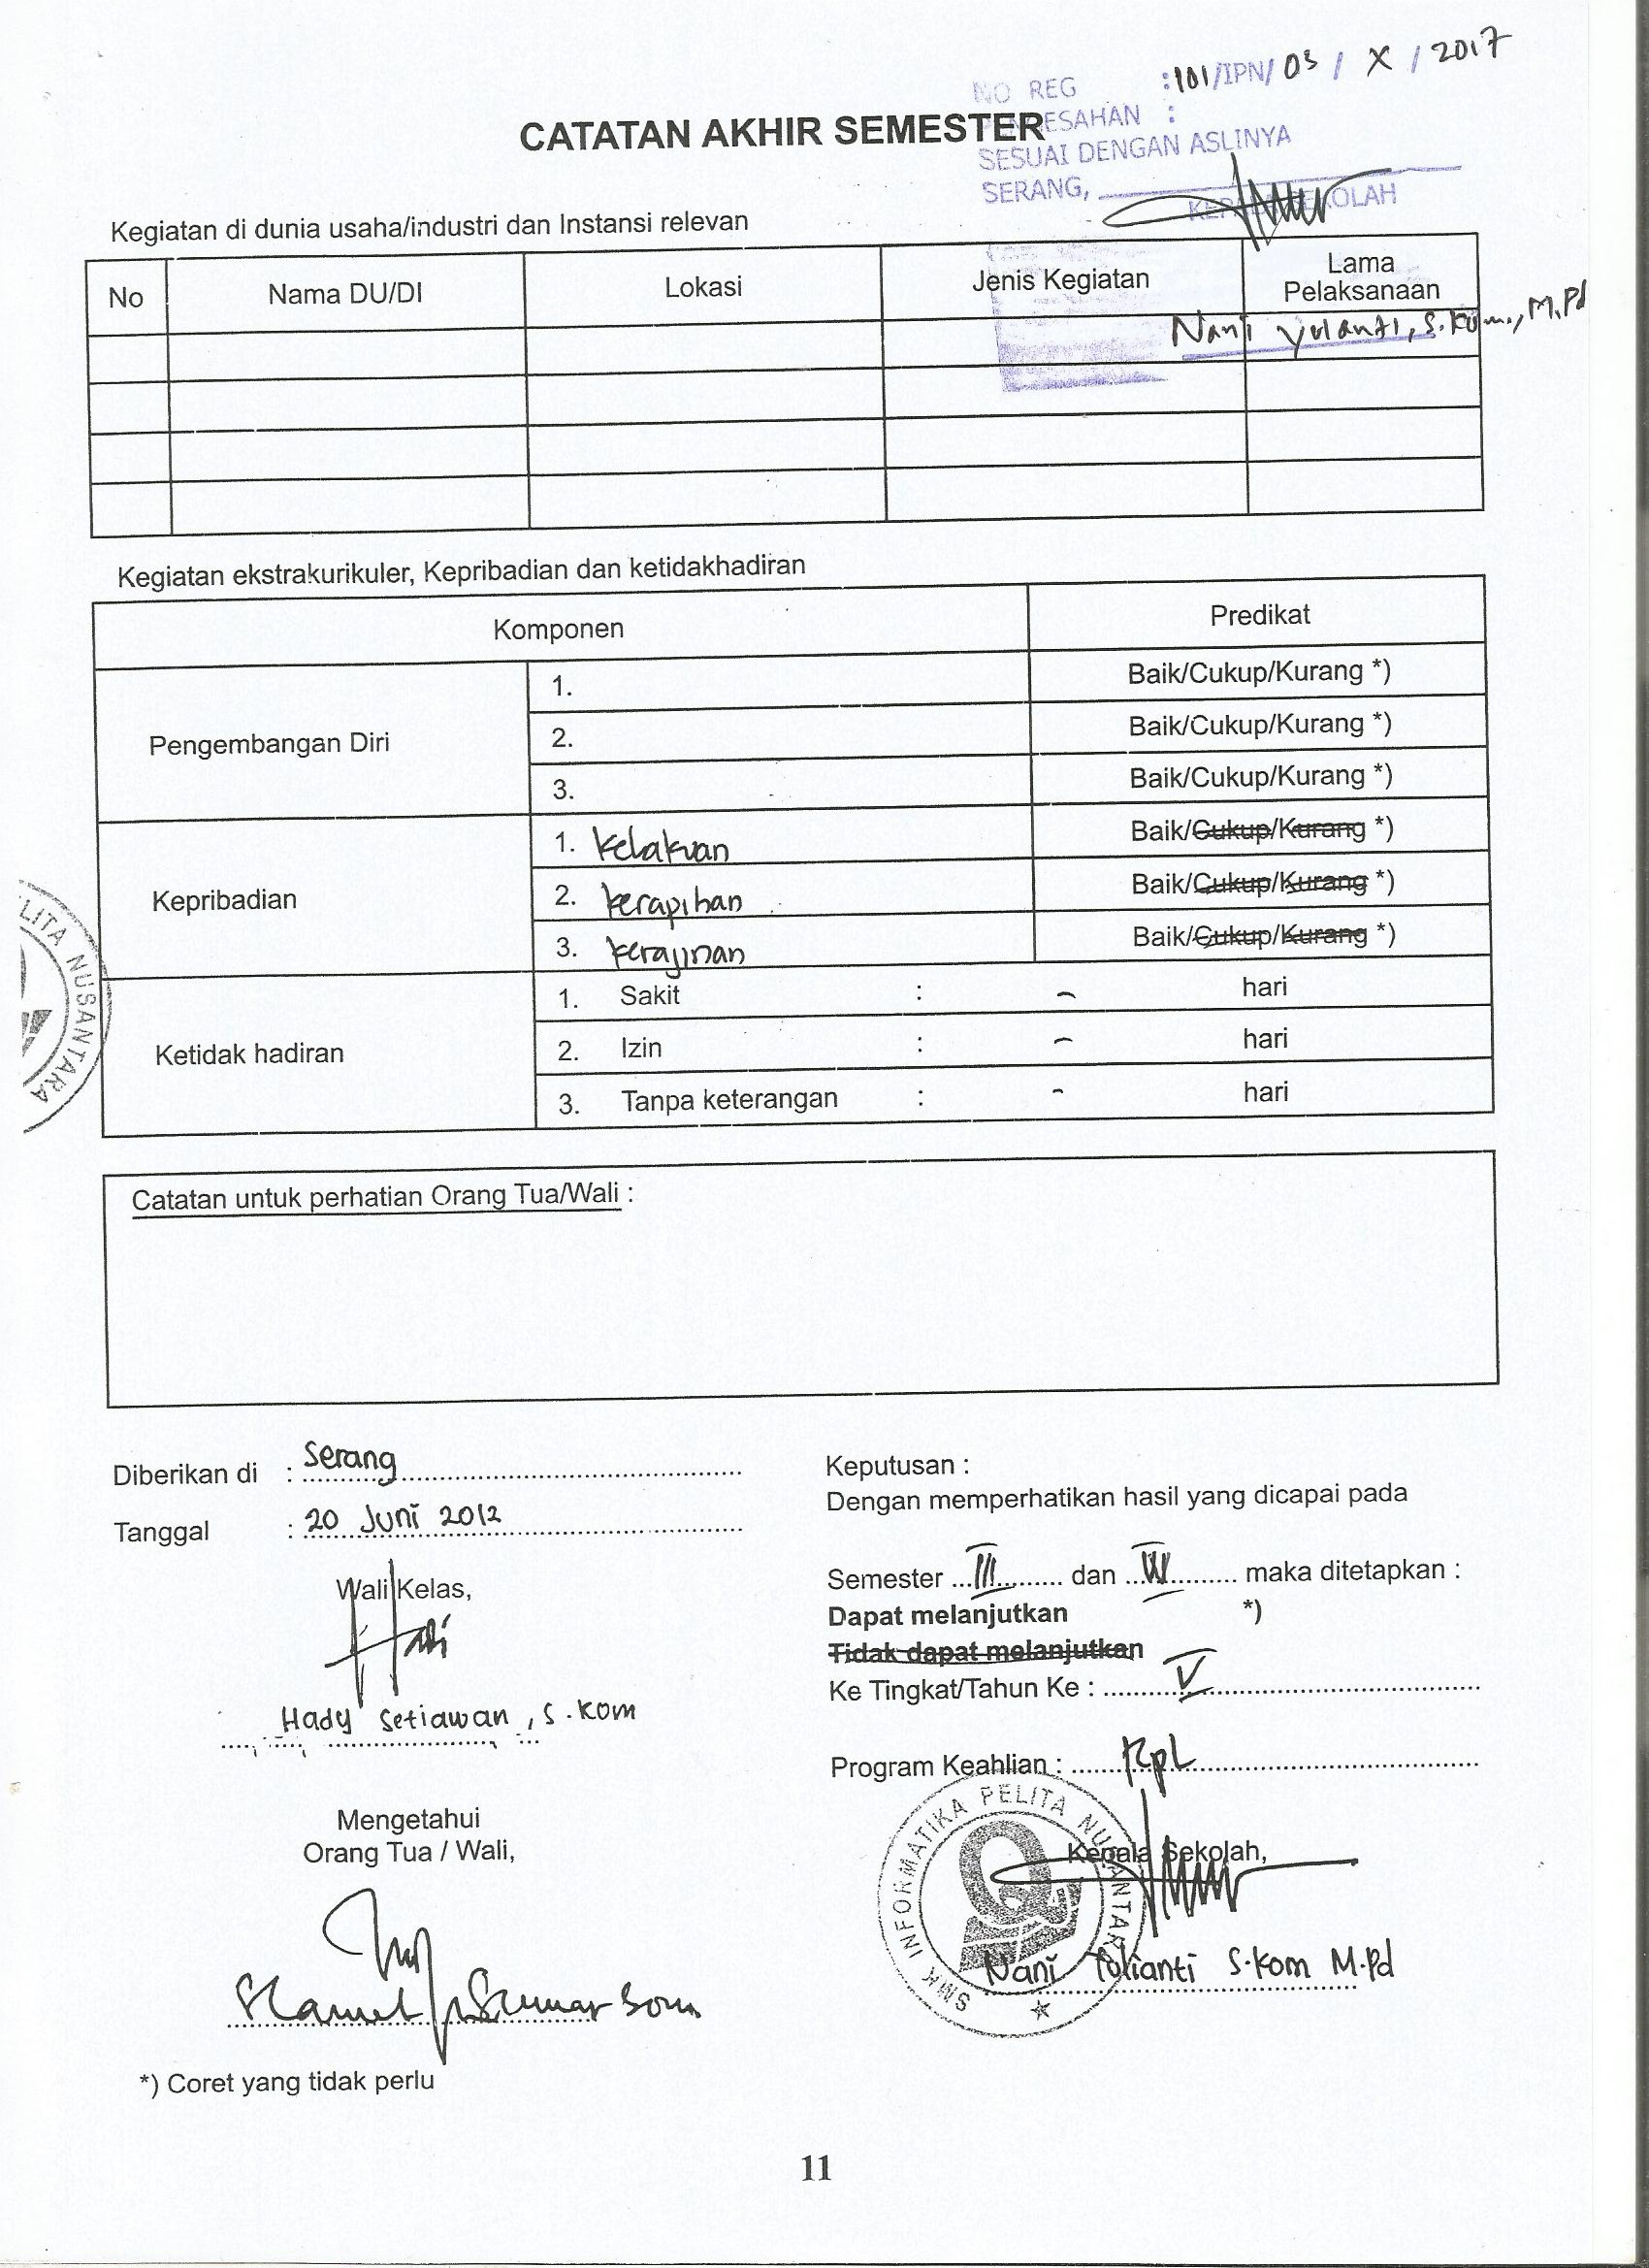 NO REG :101/IPN/03 / X / 2017
CATATAN AKHIR SEMESTER
SESUAI DENGAN ASLINYA
SERANG,
KEPALA SEKOLAH
Kegiatan di dunia usaha/industri dan Instansi relevan
No Nama DU/DI Lokasi Jenis Kegiatan Lama Pelaksanaan
Nani Yulianti, S.Kom., M.Pd
Kegiatan ekstrakurikuler, Kepribadian dan ketidakhadiran
Komponen Predikat
Pengembangan Diri
1. Baik/Cukup/Kurang *)
2. Baik/Cukup/Kurang *)
3. Baik/Cukup/Kurang *)
Kepribadian
1. kelakuan Baik/Cukup/Kurang *)
2. kerapihan Baik/Cukup/Kurang *)
3. kerajinan Baik/Cukup/Kurang *)
Ketidak hadiran
1. Sakit : - hari
2. Izin : - hari
3. Tanpa keterangan : - hari
LITA NUSANTARA
Catatan untuk perhatian Orang Tua/Wali :
Diberikan di : Serang
Tanggal : 20 Juni 2012
Wali Kelas,
Hady Setiawan, S.Kom
Mengetahui
Orang Tua / Wali,
Keputusan :
Dengan memperhatikan hasil yang dicapai pada
Semester ... III ... dan ... IV ... maka ditetapkan :
Dapat melanjutkan *)
Tidak dapat melanjutkan
Ke Tingkat/Tahun Ke : V
Program Keahlian : RPL
SMK INFORMATIKA PELITA NUSANTARA
Kepala Sekolah,
Nani Yulianti S.Kom M.Pd
*) Coret yang tidak perlu
11